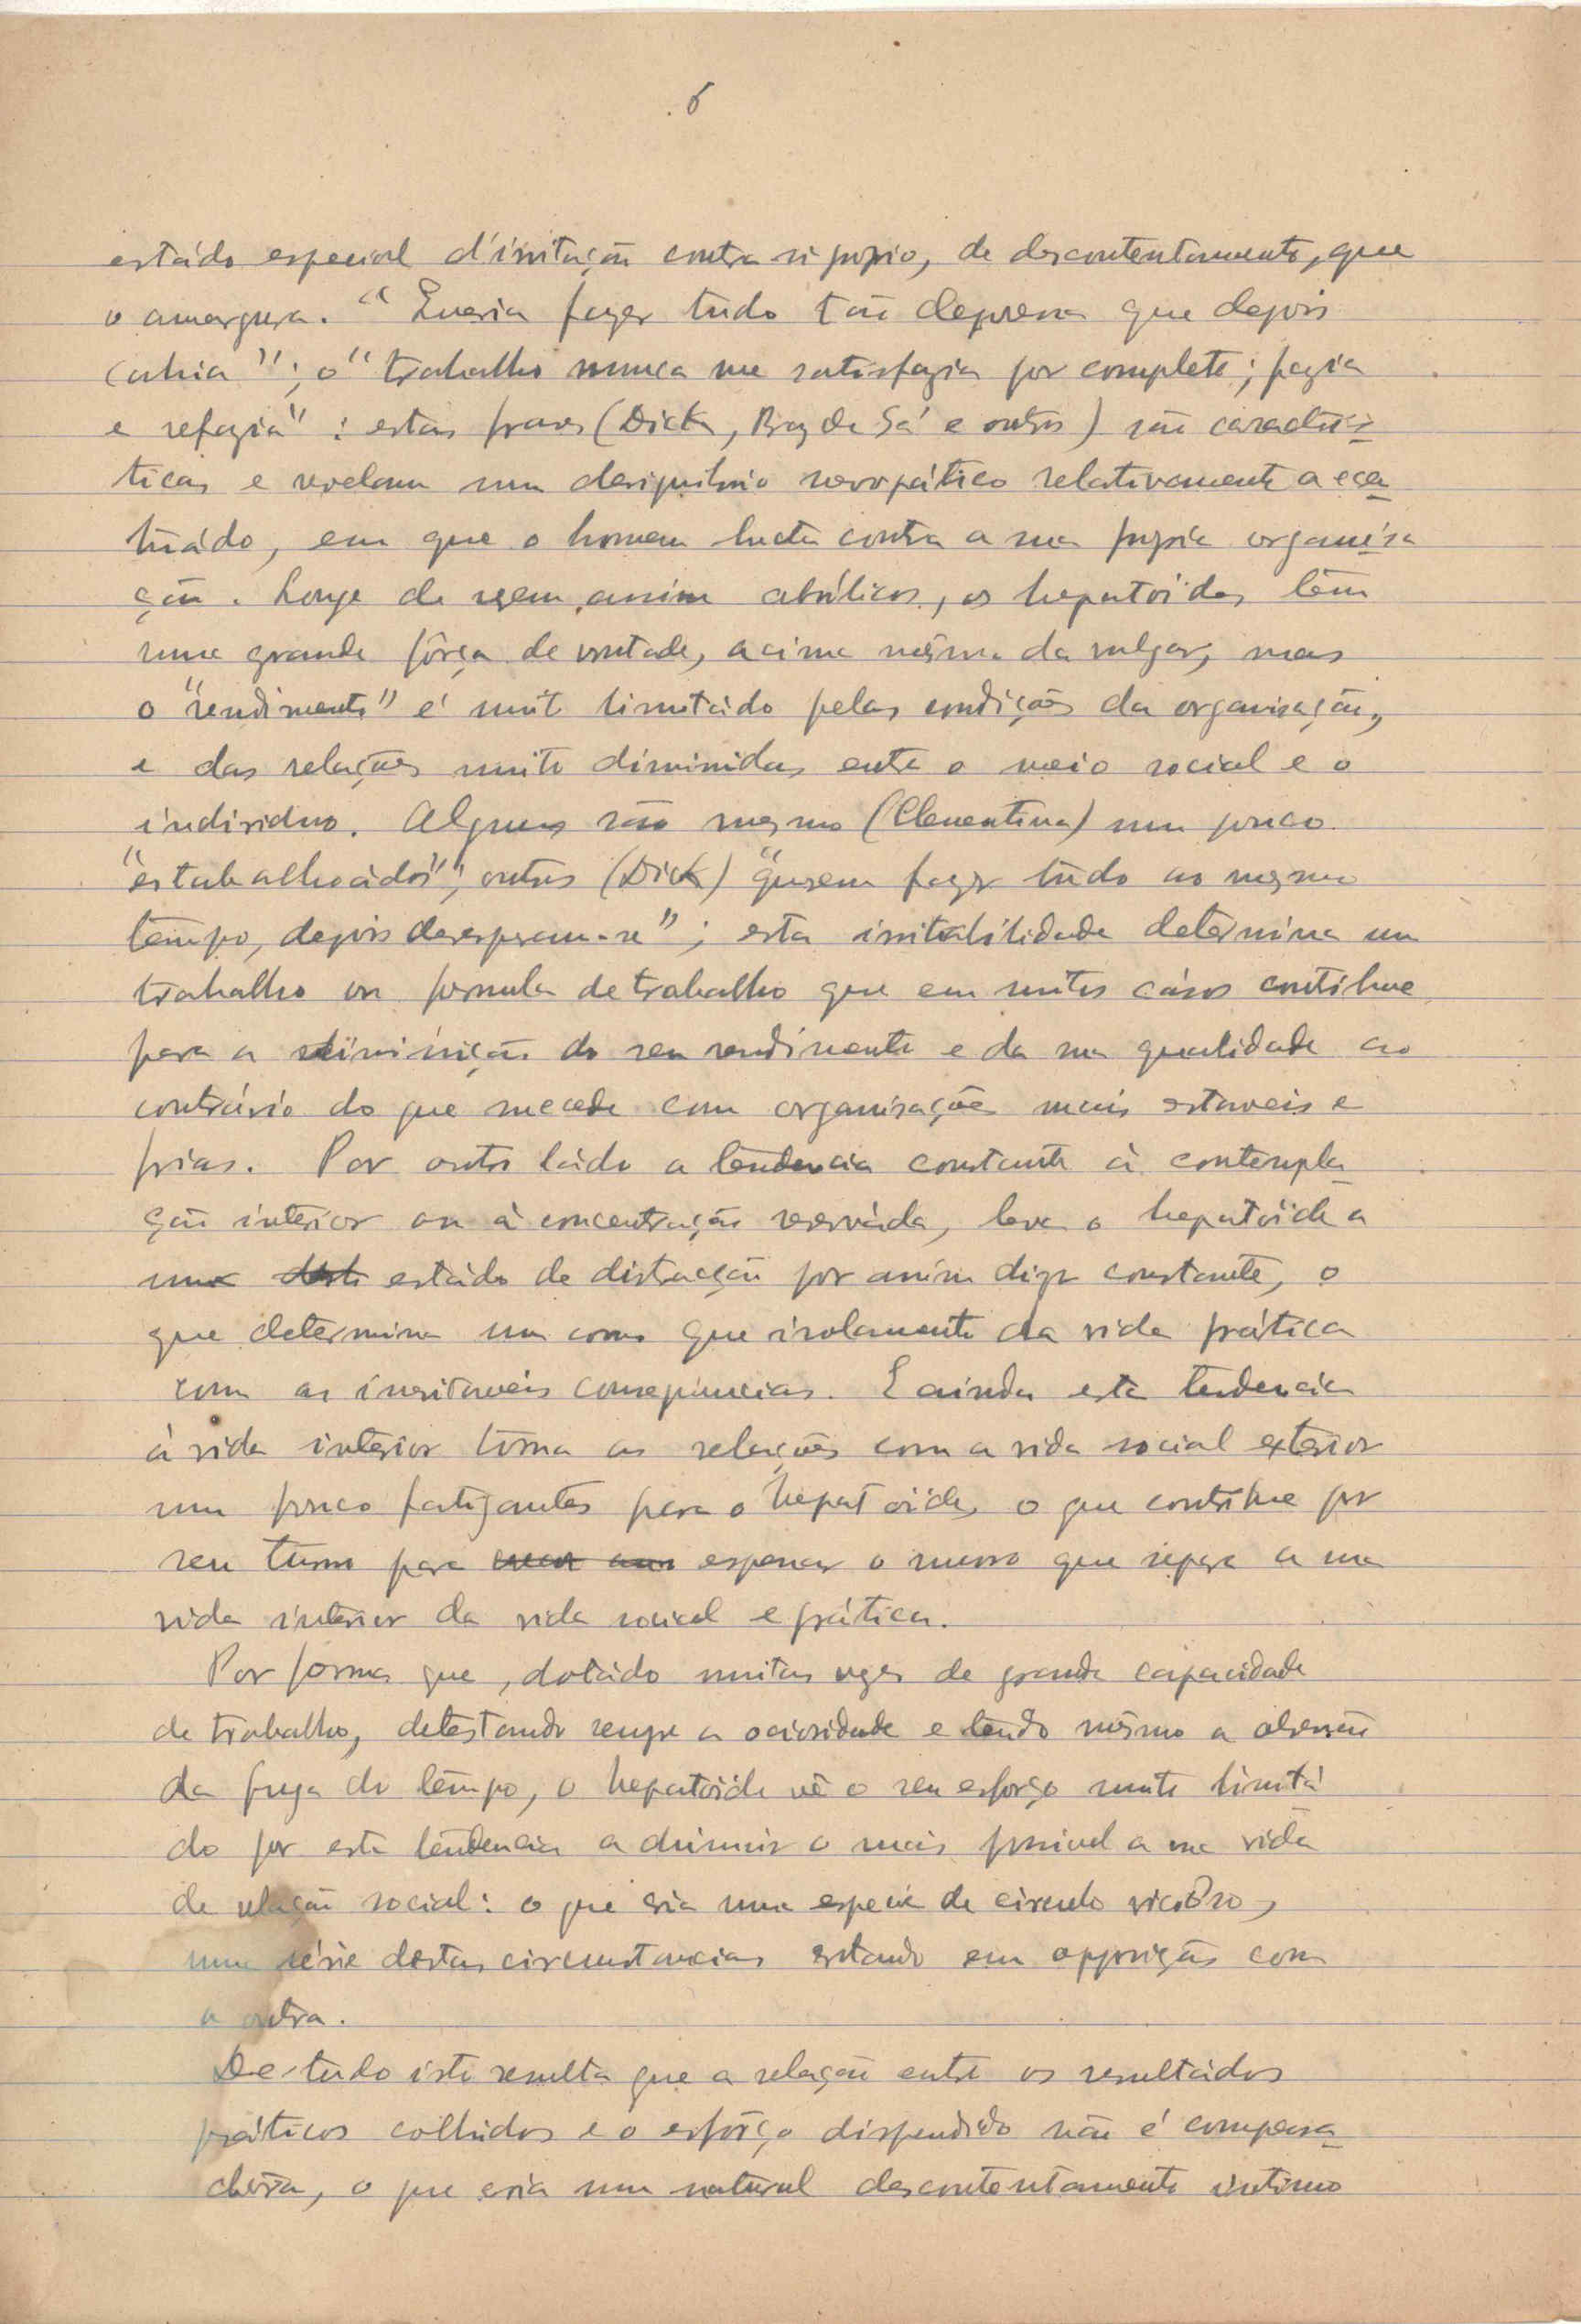 6
estádo especial d'iritação contra si proprio, de descontentamento, que
o amargura. "Queria fazer tudo tão depressa que depois
cahia"; o "trabalho nunca me satisfazia por completo; fazia
e refazia": estas frases (Dick, Braz de Sá e outros) são caracterís-
ticas e revelam um desiquilibrio nevropático relativamente acen-
tuádo, em que o homem lucta contra a sua propria organisa
ção. Longe de serem assim abúlicos, os hepatóides têm
uma grande fôrça de vontade, acima mesmo da vulgar, mas
o "rendimento" é muito limitádo pelas condições da organisação,
e das relações muito diminuidas entre o meio social e o
individuo. Alguns são mesmo (Clementina) um pouco
"estabalhoádos"; outros (Dick) "querem fazer tudo ao mesmo
tempo, depois desesperam-se"; esta irritabilidade determina um
trabalho ou formula de trabalho que em muitos cásos contribue
para a diminuição do seu rendimento e da sua qualidade ao
contrário do que sucede com organisações mais estaveis e
frias. Por outro ládo a tendencia constante à contempla-
ção interior ou à concentração reserváda, leva o hepatóide a
um estádo de distracção por assim dizer constante, o
que determina um como que isolamento da vida prática
com as inevitaveis consequencias. E ainda esta tendencia
à vida interior torna as relações com a vida social exterior
um pouco fatigantes para o hepatóide, o que contribue por
seu turno para espessar o muro que separa a sua
vida interior da vida social e prática.
Por forma que, dotádo muitas vezes de grande capacidade
de trabalho, detestando sempre a ociosidade e tendo mesmo a obsessão
da fuga do tempo, o hepatóide vê o seu esforço muito limitá
do por esta tendencia a diminuir o mais possivel a sua vida
de relação social: o que cria uma especie de circulo vicioso,
uma série destas circumstancias estando em opposição com
a outra.
De tudo isto resulta que a relação entre os resultádos
práticos colhidos e o esfôrço dispendido não é compensa-
dora, o que cria um natural descontentamento intimo